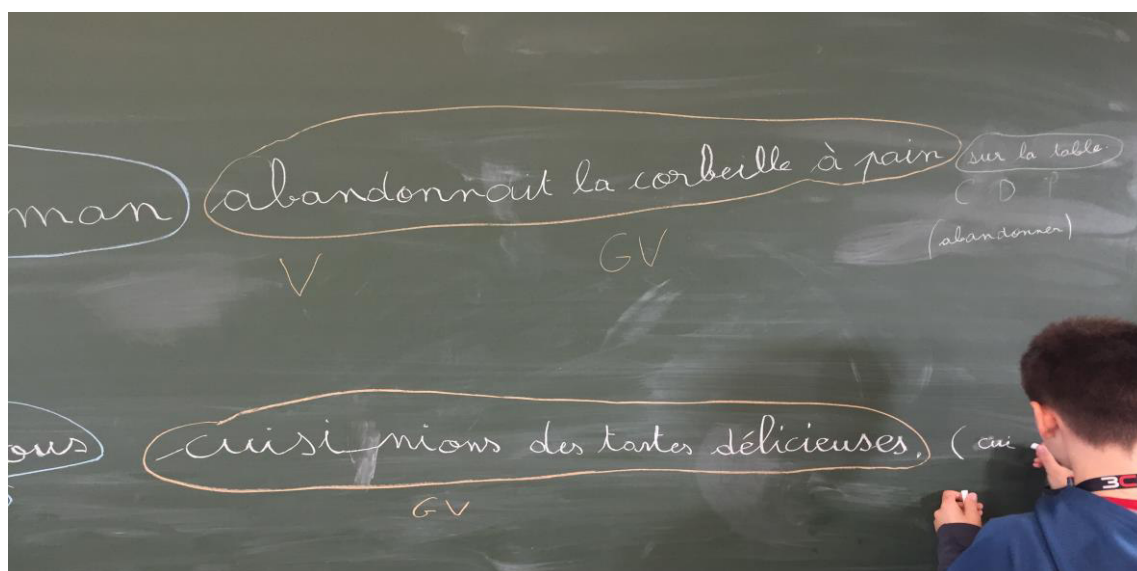 man abandonnait la corbeille à pain sur la table.
V GV C D P
(abandonner)
ous cuisinions des tartes délicieuses. (cui
GV
3C